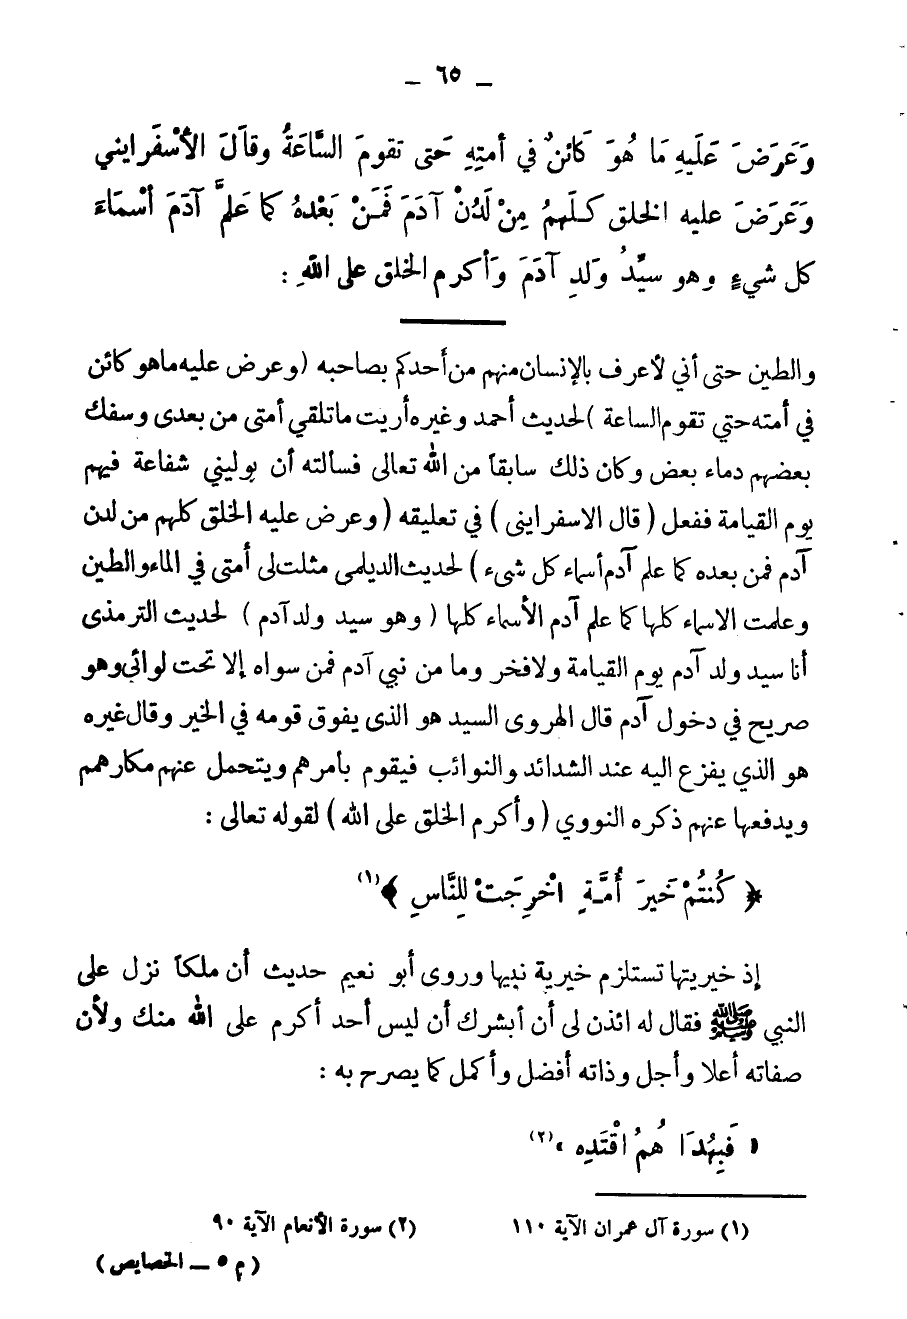 ـ ٦٥ ـ
وَعَرَضَ عَلَيهِ مَا هُوَ كَائنٌ في أمتِهِ حَتى تقومَ السَّاعَةُ وقالَ الأسْفَرايني
وَعَرَضَ عليه الخلق كلَهمُ مِنْ لَدُنْ آدَمَ فَمَنْ بَعْدهُ كما عَلمَّ آدَمَ أسْمَاءَ
كل شيءٍ وهو سيِّدُ وَلدِ آدَمَ وَأكرم الخلق على اللهِ :
والطين حتى أني لأعرف بالإنسان منهم من أحدكم بصاحبه (وعرض عليه ماهو كائن
في أمته حتي تقوم الساعة ) لحديث أحمد وغيره أريت ماتلقي أمتى من بعدى وسفك
بعضهم دماء بعض وكان ذلك سابقاً من الله تعالى فسألته أن يوليني شفاعة فيهم
يوم القيامة ففعل ( قال الاسفراينى ) في تعليقه ( وعرض عليه الخلق كلهم من لدن
آدم فمن بعده كما علم آدم أسماء كل شىء ) لحديث الديلمى مثلت لى أمتى في الماء والطين
وعلمت الاسماء كلها كما علم آدم الأسماء كلها ( وهو سيد ولد آدم ) لحديث الترمذى
أنا سيد ولد آدم يوم القيامة ولافخر وما من نبي آدم فمن سواه إلا تحت لوائي وهو
صريح في دخول آدم قال الهروى السيد هو الذى يفوق قومه في الخير وقال غيره
هو الذي يفزع اليه عند الشدائد والنوائب فيقوم بأمرهم ويتحمل عنهم مكارههم
ويدفعها عنهم ذكره النووي ( وأكرم الخلق على الله ) لقوله تعالى :
﴿ كُنتُمْ خَيرَ أُمَّةٍ اخْرِجَتْ لِلنَّاسِ ﴾(١)
إذ خيريتها تستلزم خيرية نبيها وروى أبو نعيم حديث أن ملكاً نزل على
النبي ﷺ فقال له ائذن لى أن أبشرك أن ليس أحد أكرم على الله منك ولأن
صفاته أعلا وأجل وذاته أفضل وأكمل كما يصرح به :
« فَبِهُدَا هُمُ اقْتَدِه »(٢)
(١) سورة آل عمران الآية ١١٠ (٢) سورة الأنعام الآية ٩٠
( م ٥ ـ الخصايص )